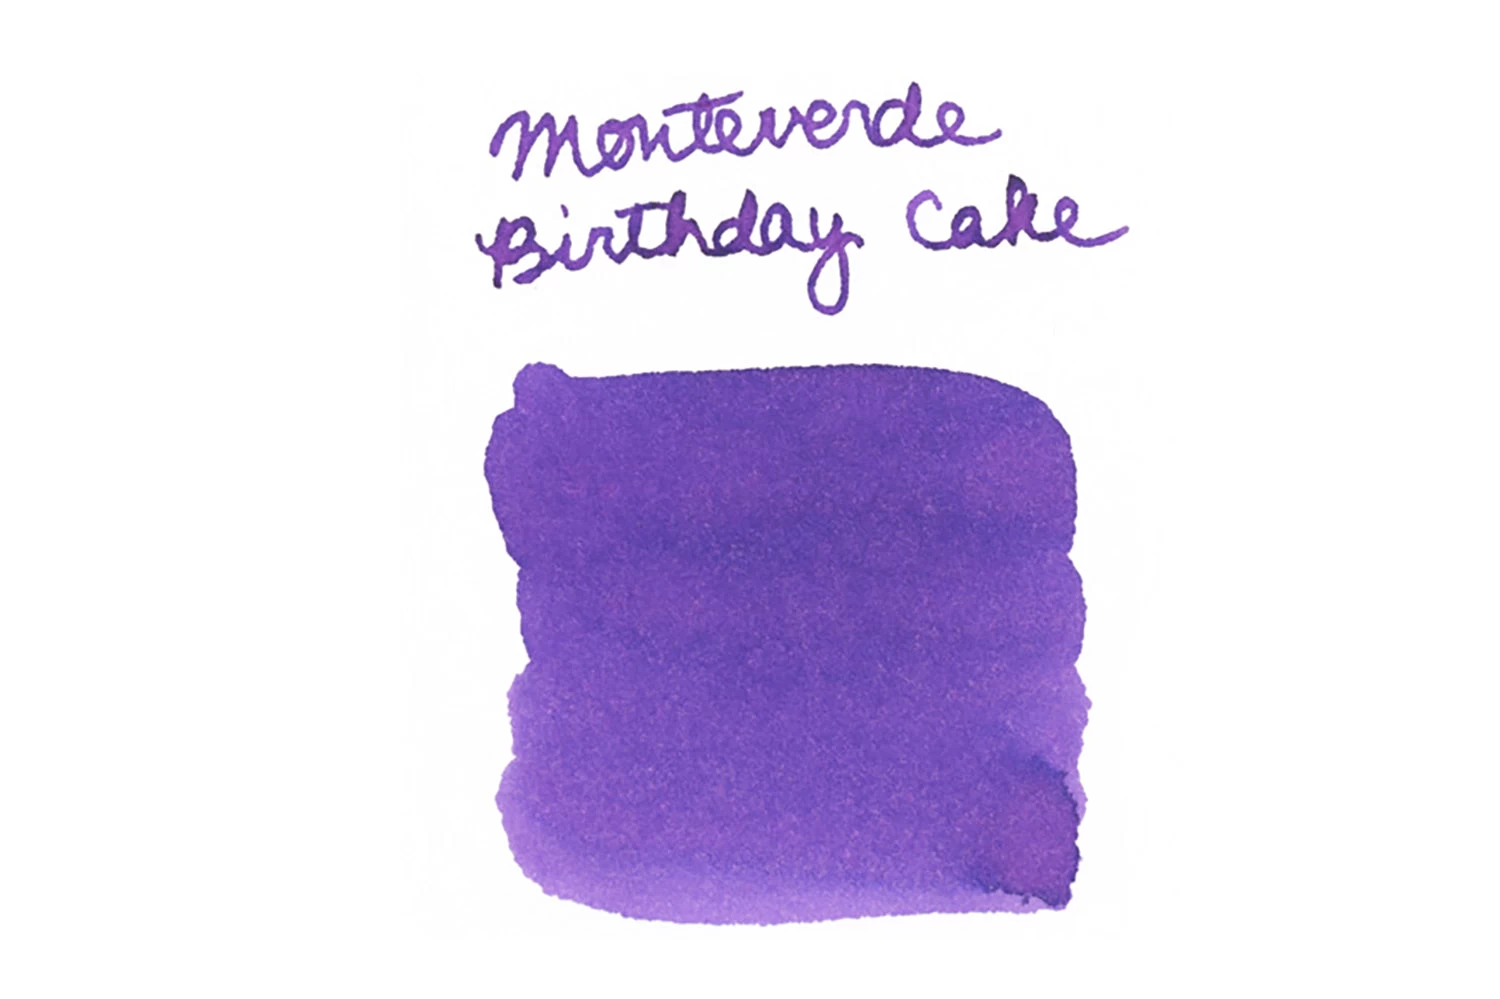 Monteverde
Birthday Cake